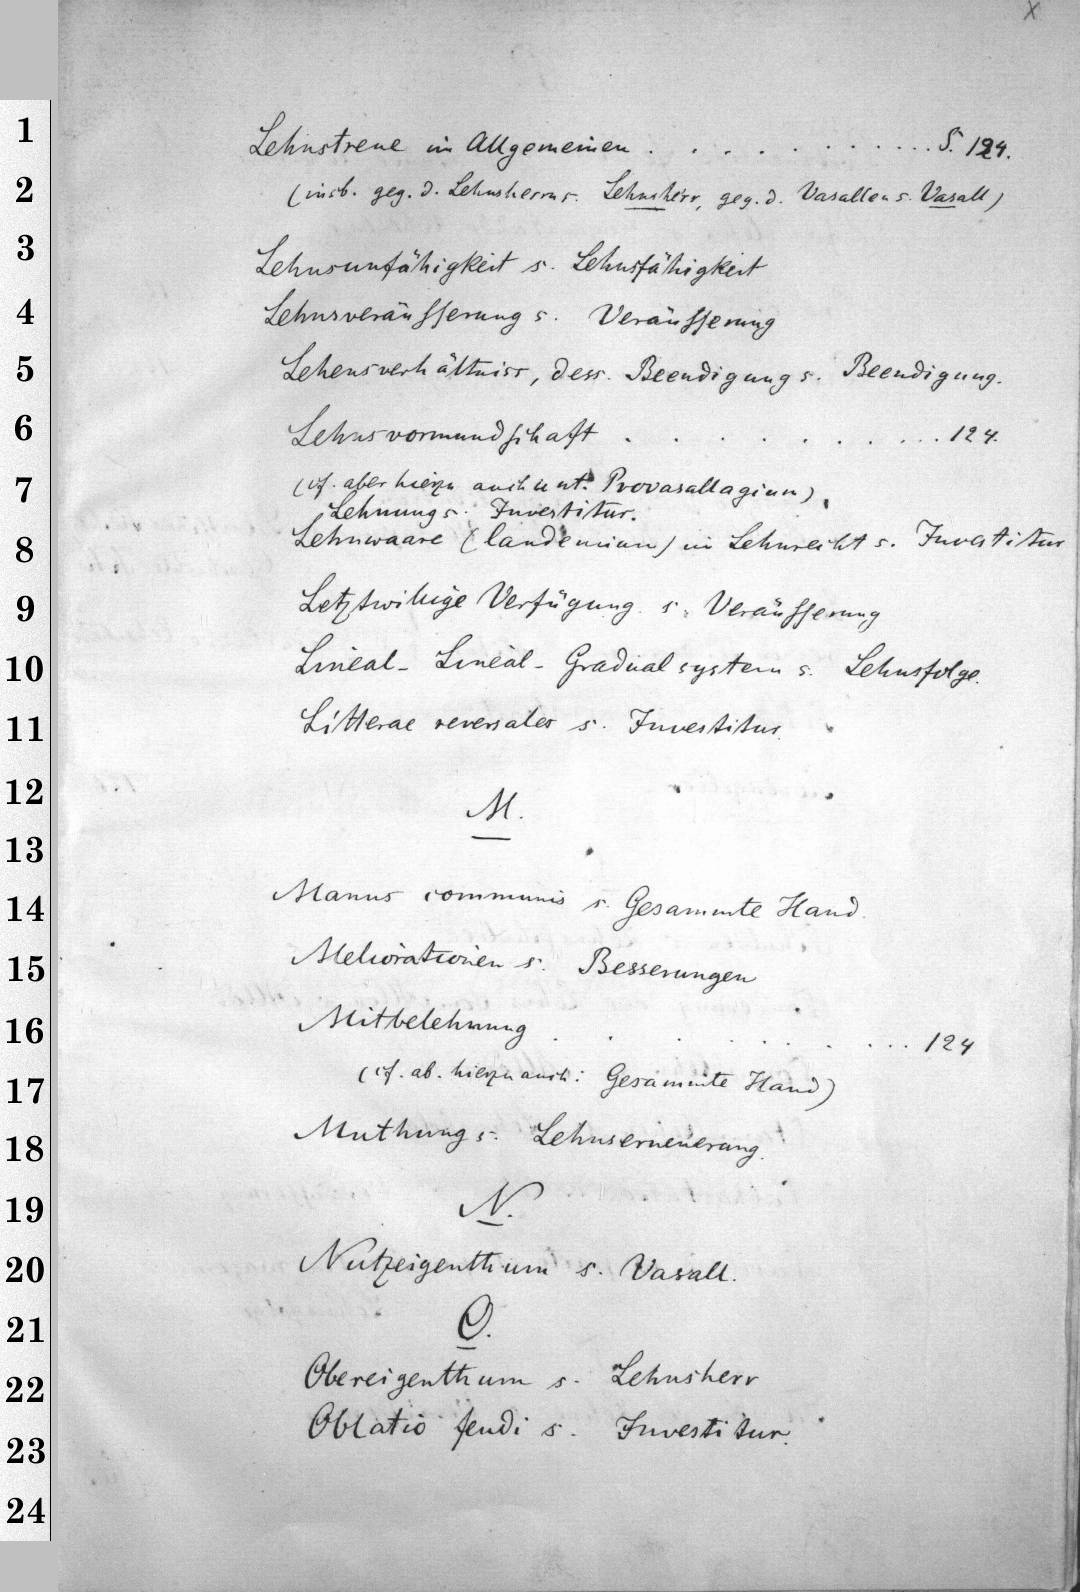 x
1 Lehnstreue im Allgemeinen . . . . . . . . . . . . S. 124.
2 (insb. geg. d. Lehnsherrn s. Lehnsherr, geg. d. Vasallen s. Vasall)
3 Lehnsunfähigkeit s. Lehnsfähigkeit
4 Lehnsveräusserung s. Veräusserung
5 Lehensverhältniss, dess. Beendigung s. Beendigung.
6 Lehnsvormundschaft . . . . . . . . . . 124.
7 (cf. aber hierzu auch unt. Provasallagium)
Lehnung s. Investitur.
8 Lehnwaare (landemium) im Lehnrecht s. Investitur
9 Letztwillige Verfügung s. Veräusserung
10 Lineal- Lineal-Gradualsystem s. Lehnsfolge.
11 Litterae reversales s. Investitur.
12 M.
13
14 Manus communis s. Gesammte Hand.
15 Meliorationen s. Besserungen
16 Mitbelehnung . . . . . . . . . . 124
17 (cf. ab. hierzu auch: Gesammte Hand)
18 Muthung s. Lehnserneuerung.
19 N.
20 Nutzeigenthum s. Vasall.
21 O.
22 Obereigenthum s. Lehnsherr
23 Oblatio feudi s. Investitur.
24